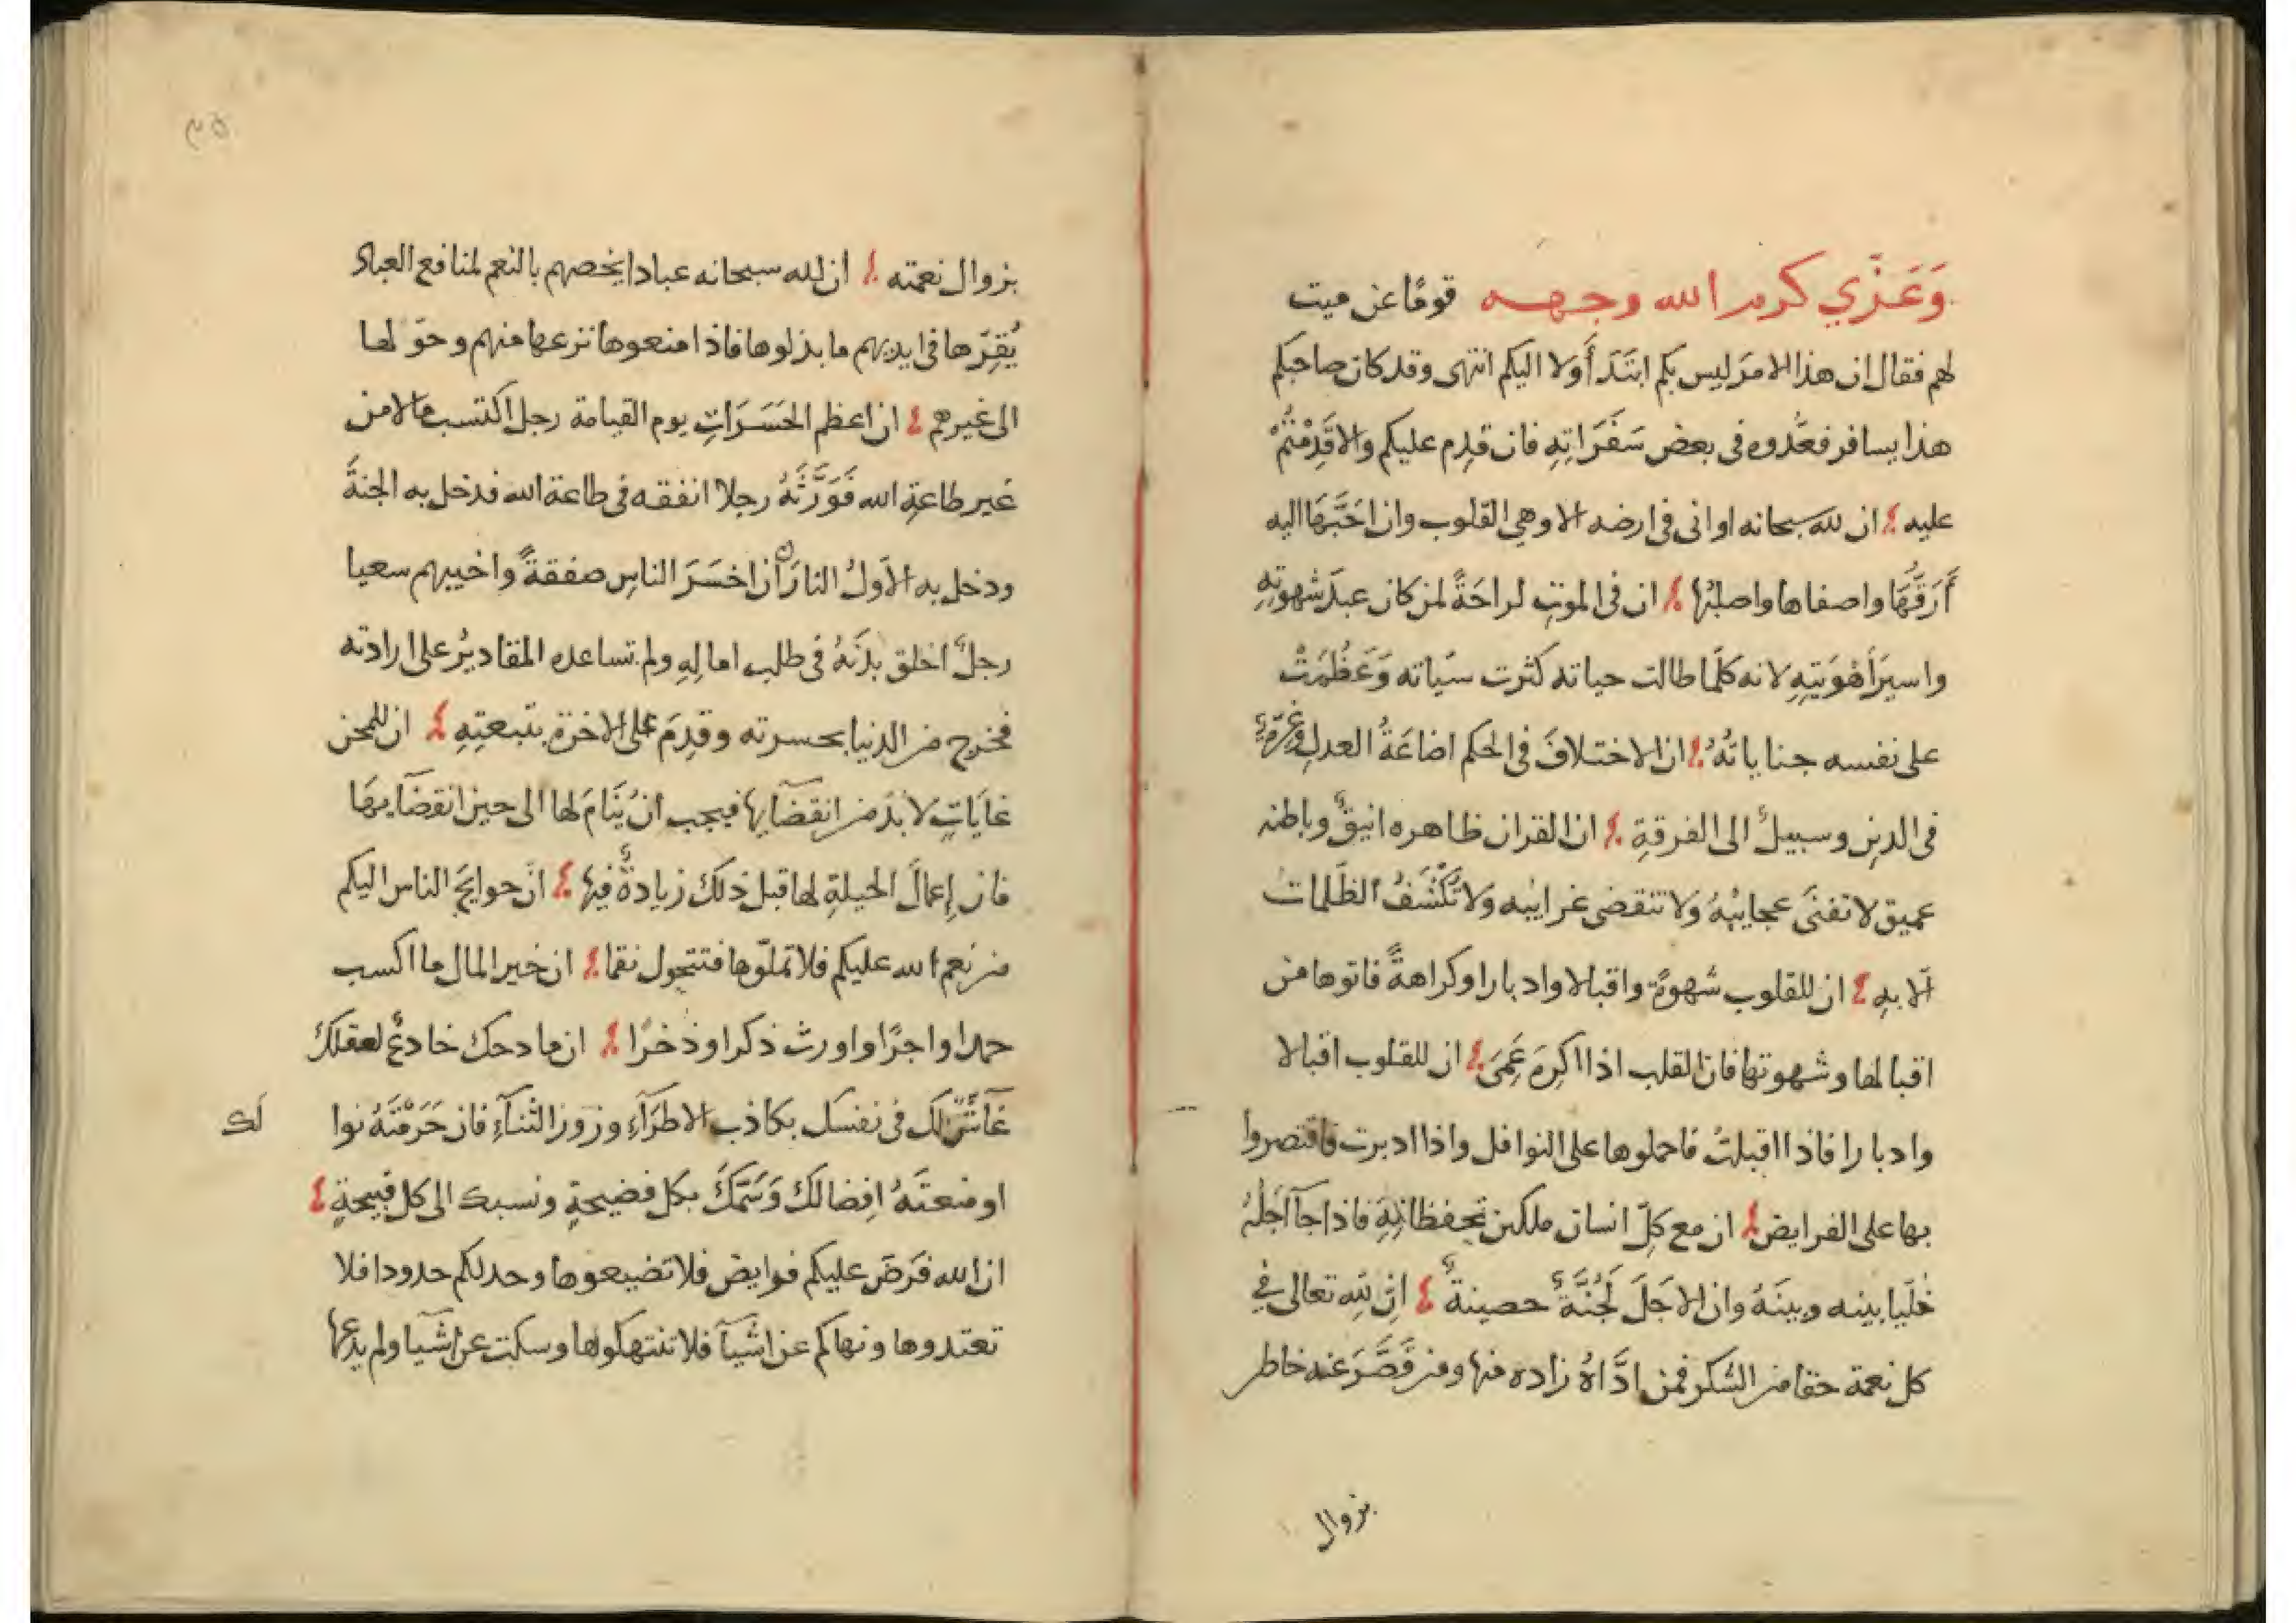 وَعَزّي كرم الله وجهه قومًا عن ميت
لهم فقال ان هذا الامرَ ليس بكم ابتَدَأَ ولا اليكم انتهى وقد كان صاحبكم
هذا يسافر فعدُّوه فى بعض سَفَرَاتِهِ فان قدِم عليكم والا قَدِمْتُمْ
عليه ؛ ان لله سبحانه اوانى فى ارضه الا وهي القلوب وان احَبَّهَا اليه
أَرَقُّهَا واصفاها واصلبُها ؛ ان فى الموتِ لراحَةً لمن كان عبدَ شهوتِهِ
واسيرَ أَهْوِيَتِهِ لانه كلّما طالت حياته كثرت سيّاته وَعَظُمَتْ
على نفسه جناياتُهُ ؛ ان الاختلافَ فى الحكم اضاعَةُ العدلِ وغِرّةٌ
فى الدينِ وسبيلٌ الى الفرقةِ ؛ ان القران ظاهره انيقٌ وباطنه
عميق لا تفنَى عجايبُهُ ولا تنقضى غرايبه ولا تُكْشَفُ الظّلمات
الّا بهِ ؛ ان للقلوب شهوةً واقبالا وادبارا وكراهةً فاتوها من
اقبالها وشهوتها فان القلب اذا اكرِهَ عَمِىَ ؛ ان للقلوب اقبالا
وادبارا فاذا اقبلتْ فاحملوها على النوافل واذا ادبرت فاقتصروا
بها على الفرايض ؛ ان مع كلّ انسان ملكين يحفظانِهِ فاذا جآ اَجَلُهُ
خليّا بينه وبينَهُ وان الاجَلَ لَجُنَّةٌ حصينةٌ ؛ اِنّ لِلّهِ تعالى في
كل نعمة حقا من الشكر فمن ادَّاهُ زاده منها ومن قَصَّرَ عنه خاطر
بزوال
٣٥
بزوال نعمته ؛ ان لله سبحانه عبادا يخصهم بالنعم لمنافع العباد
يُقِرّها فى ايديهم ما بذلوها فاذا منعوها نزعها منهم وحوّلها
الى غيرهم ؛ ان اعظم الحَسَرَاتِ يوم القيامة رجل اكتسب مالا من
غير طاعةِ الله فَوَرَّثَهُ رجلا انفقه فى طاعة الله فدخل به الجنةَ
ودخل به الاَولُ النارَ ان اخسَرَ الناسِ صفقةً واخيبهم سعيا
رجلٌ اخلق بدَنَهُ فى طلب امالِهِ ولم تساعده المقاديرُ على ارادته
فخرج من الدنيا بحسرته وقدِمَ على الاخرة بتبعتِهِ ؛ ان للمحن
غايَاتٍ لا بُدّ من انقضآيها فيجب ان يَنَامَ لها الى حين انقضآيهَا
فان إعمالَ الحيلةِ لها قبل ذلك زيادةٌ فيها ؛ انّ حوايجَ الناس اليكم
من نِعم الله عليكم فلا تملّوها فتتحول نقما ؛ ان خير المال ما اكسب
حمدا واجرًا واورث ذكرا وذخرًا ؛ ان مادحك خادعٌ لعقلك
غآشّ لك فى نفسك بكاذب الاطرَآءِ وزور الثنآءِ فان حَرَمْتَهُ نوا
لك
او منعتَهُ اِفضالك وَسَمَكَ بكل فضيحةٍ ونسبك الى كل قبيحةٍ ؛
ان الله فَرَضَ عليكم فرايض فلا تضيعوها وحد لكم حدودا فلا
تعتدوها ونهاكم عن اشيآ فلا تنتهكوها وسكت عن اشيا ولم يدعها